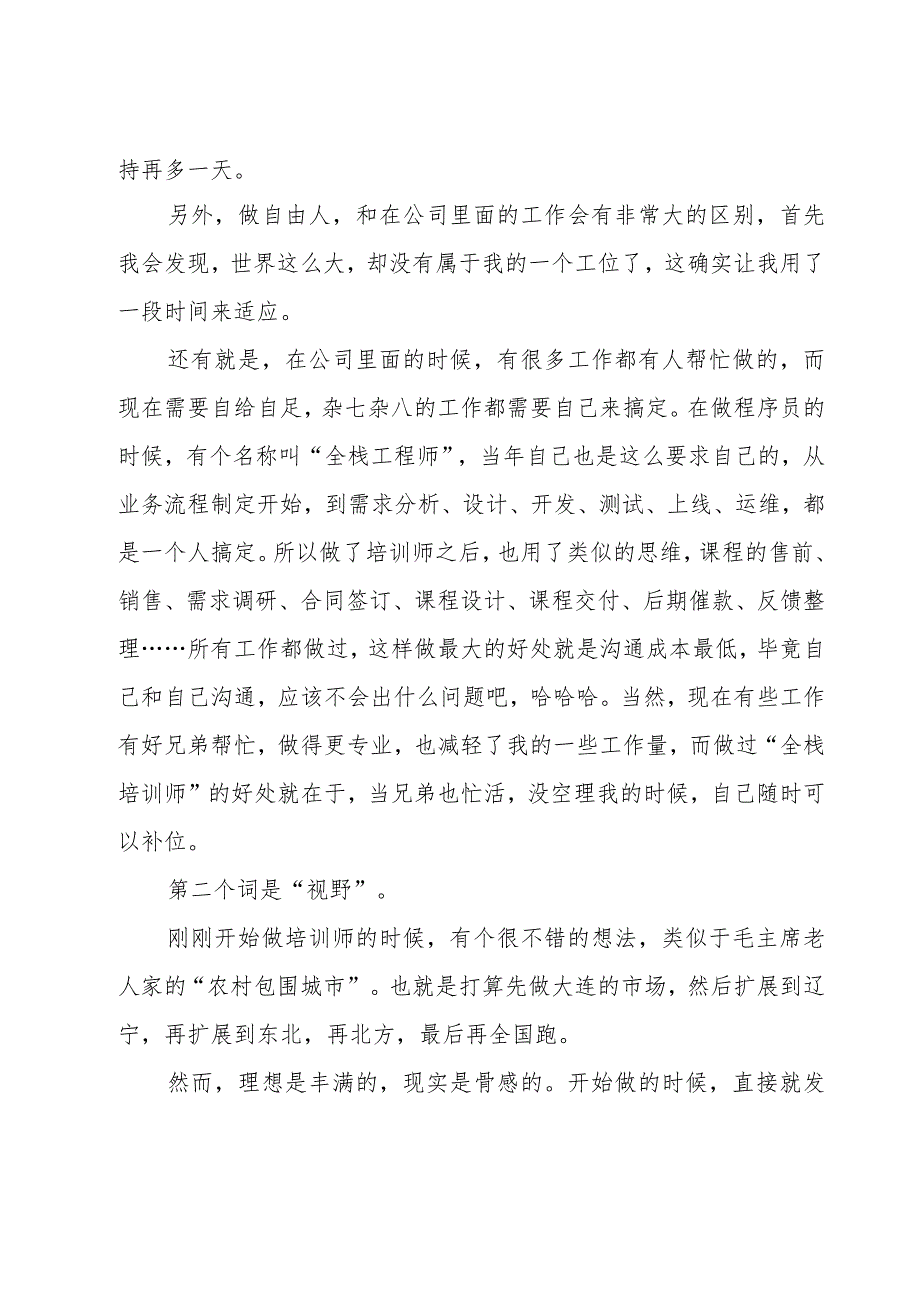 持再多一天。
另外，做自由人，和在公司里面的工作会有非常大的区别，首先
我会发现，世界这么大，却没有属于我的一个工位了，这确实让我用了
一段时间来适应。
还有就是，在公司里面的时候，有很多工作都有人帮忙做的，而
现在需要自给自足，杂七杂八的工作都需要自己来搞定。在做程序员的
时候，有个名称叫“全栈工程师”，当年自己也是这么要求自己的，从
业务流程制定开始，到需求分析、设计、开发、测试、上线、运维，都
是一个人搞定。所以做了培训师之后，也用了类似的思维，课程的售前、
销售、需求调研、合同签订、课程设计、课程交付、后期催款、反馈整
理……所有工作都做过，这样做最大的好处就是沟通成本最低，毕竟自
己和自己沟通，应该不会出什么问题吧，哈哈哈。当然，现在有些工作
有好兄弟帮忙，做得更专业，也减轻了我的一些工作量，而做过“全栈
培训师”的好处就在于，当兄弟也忙活，没空理我的时候，自己随时可
以补位。
第二个词是“视野”。
刚刚开始做培训师的时候，有个很不错的想法，类似于毛主席老
人家的“农村包围城市”。也就是打算先做大连的市场，然后扩展到辽
宁，再扩展到东北，再北方，最后再全国跑。
然而，理想是丰满的，现实是骨感的。开始做的时候，直接就发